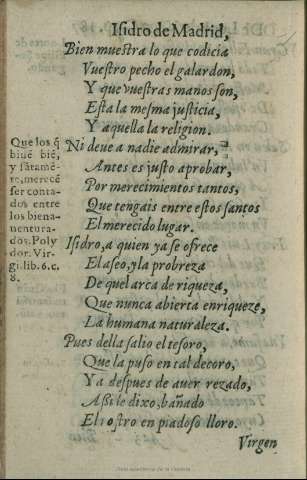 Isidro de Madrid,
Bien muestra lo que codicia
Vuestro pecho el galardon,
Y que vuestras manos son,
Esta la mesma justicia,
Y aquella la religion.
Ni deue a nadie admirar,
Antes es justo aprobar,
Por merecimientos tantos,
Que tengais entre estos santos
El merecido lugar.
Isidro, a quien ya se ofrece
El aseo, y la probreza
De quel arca de riqueza,
Que nunca abierta enriqueze,
La humana naturaleza.
Pues della salio el tesoro,
Que la puso en tal decoro,
Y a despues de auer rezado,
Assi le dixo, bañado
El rostro en piadoso lloro.
Virgen
Que los q̃
biuẽ biẽ,
y sãtamẽ-
te, merecẽ
ser conta-
dos entre
los biena-
uentura-
dos. Poly
dor. Vir-
gi. lib. 6. c.
8.